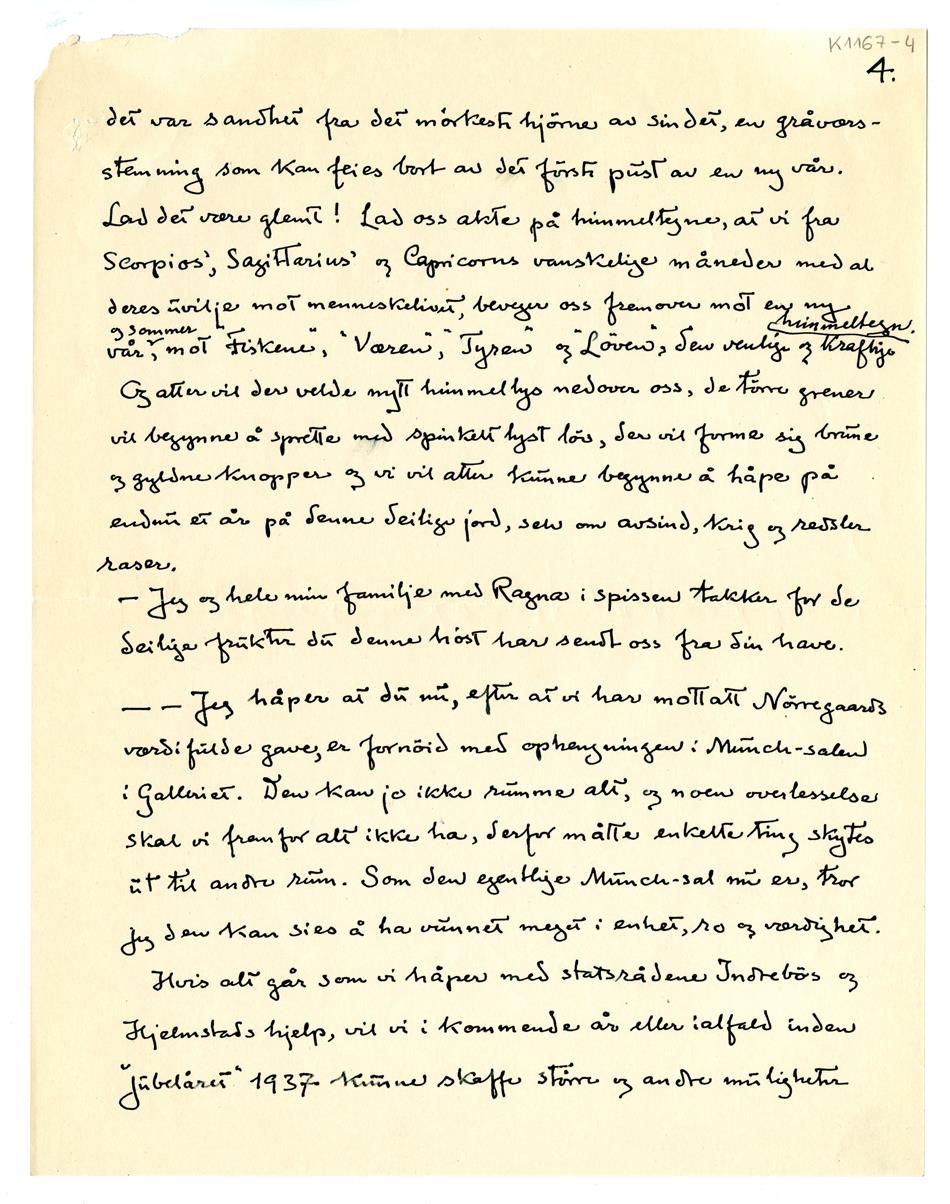 K1167-4
4.
det var sandhet fra det mörkeste hjörne av sindet, en gråværs-
stemning som kan feies bort av det förste püst av en ny vår.
Lad det være glemt! Lad oss akte på himmeltegne, at vi fra
Scorpios', Sagittarius' og Capricorns vanskelige måneder med al
deres üvilje mot menneskelivet, beveger oss fremover mot en ny
og sommer himmeltegn.
vår, mot "Fiskene", "Væren", "Tyren" og "Löven", den venlige og kraftige
Og atter vil der velde nytt himmellys nedover oss, de törre grener
vil begynne å sprette med spinkelt lyst löv, der vil forme sig brüne
og gyldne knopper og vi vil atter künne begynne å håpe på
endnü et år på denne deilige jord, selv om avsind, krig og redsler
raser.
— Jeg og hele min familje med Ragna i spissen takker for de
deilige frükter dü denne höst har sendt oss fra din have.
— — Jeg håper at dü nü, efter at vi har mottatt Nörregaards
værdifülde gave, er fornöid med ophengningen i Münch-salen
i Galleriet. Den kan jo ikke rümme alt, og noen overlesselse
skal vi fremfor alt ikke ha, derfor måtte enkelte ting skytes
üt til andre rüm. Som den egentlige Münch-sal nü er, tror
jeg den kan sies å ha vünnet meget i enhet, ro og værdighet.
Hvis alt går som vi håper med statsrådene Indrebös og
Hjelmstads hjelp, vil vi i kommende år eller ialfald inden
"Jübelåret" 1937 künne skaffe större og andre müligheter